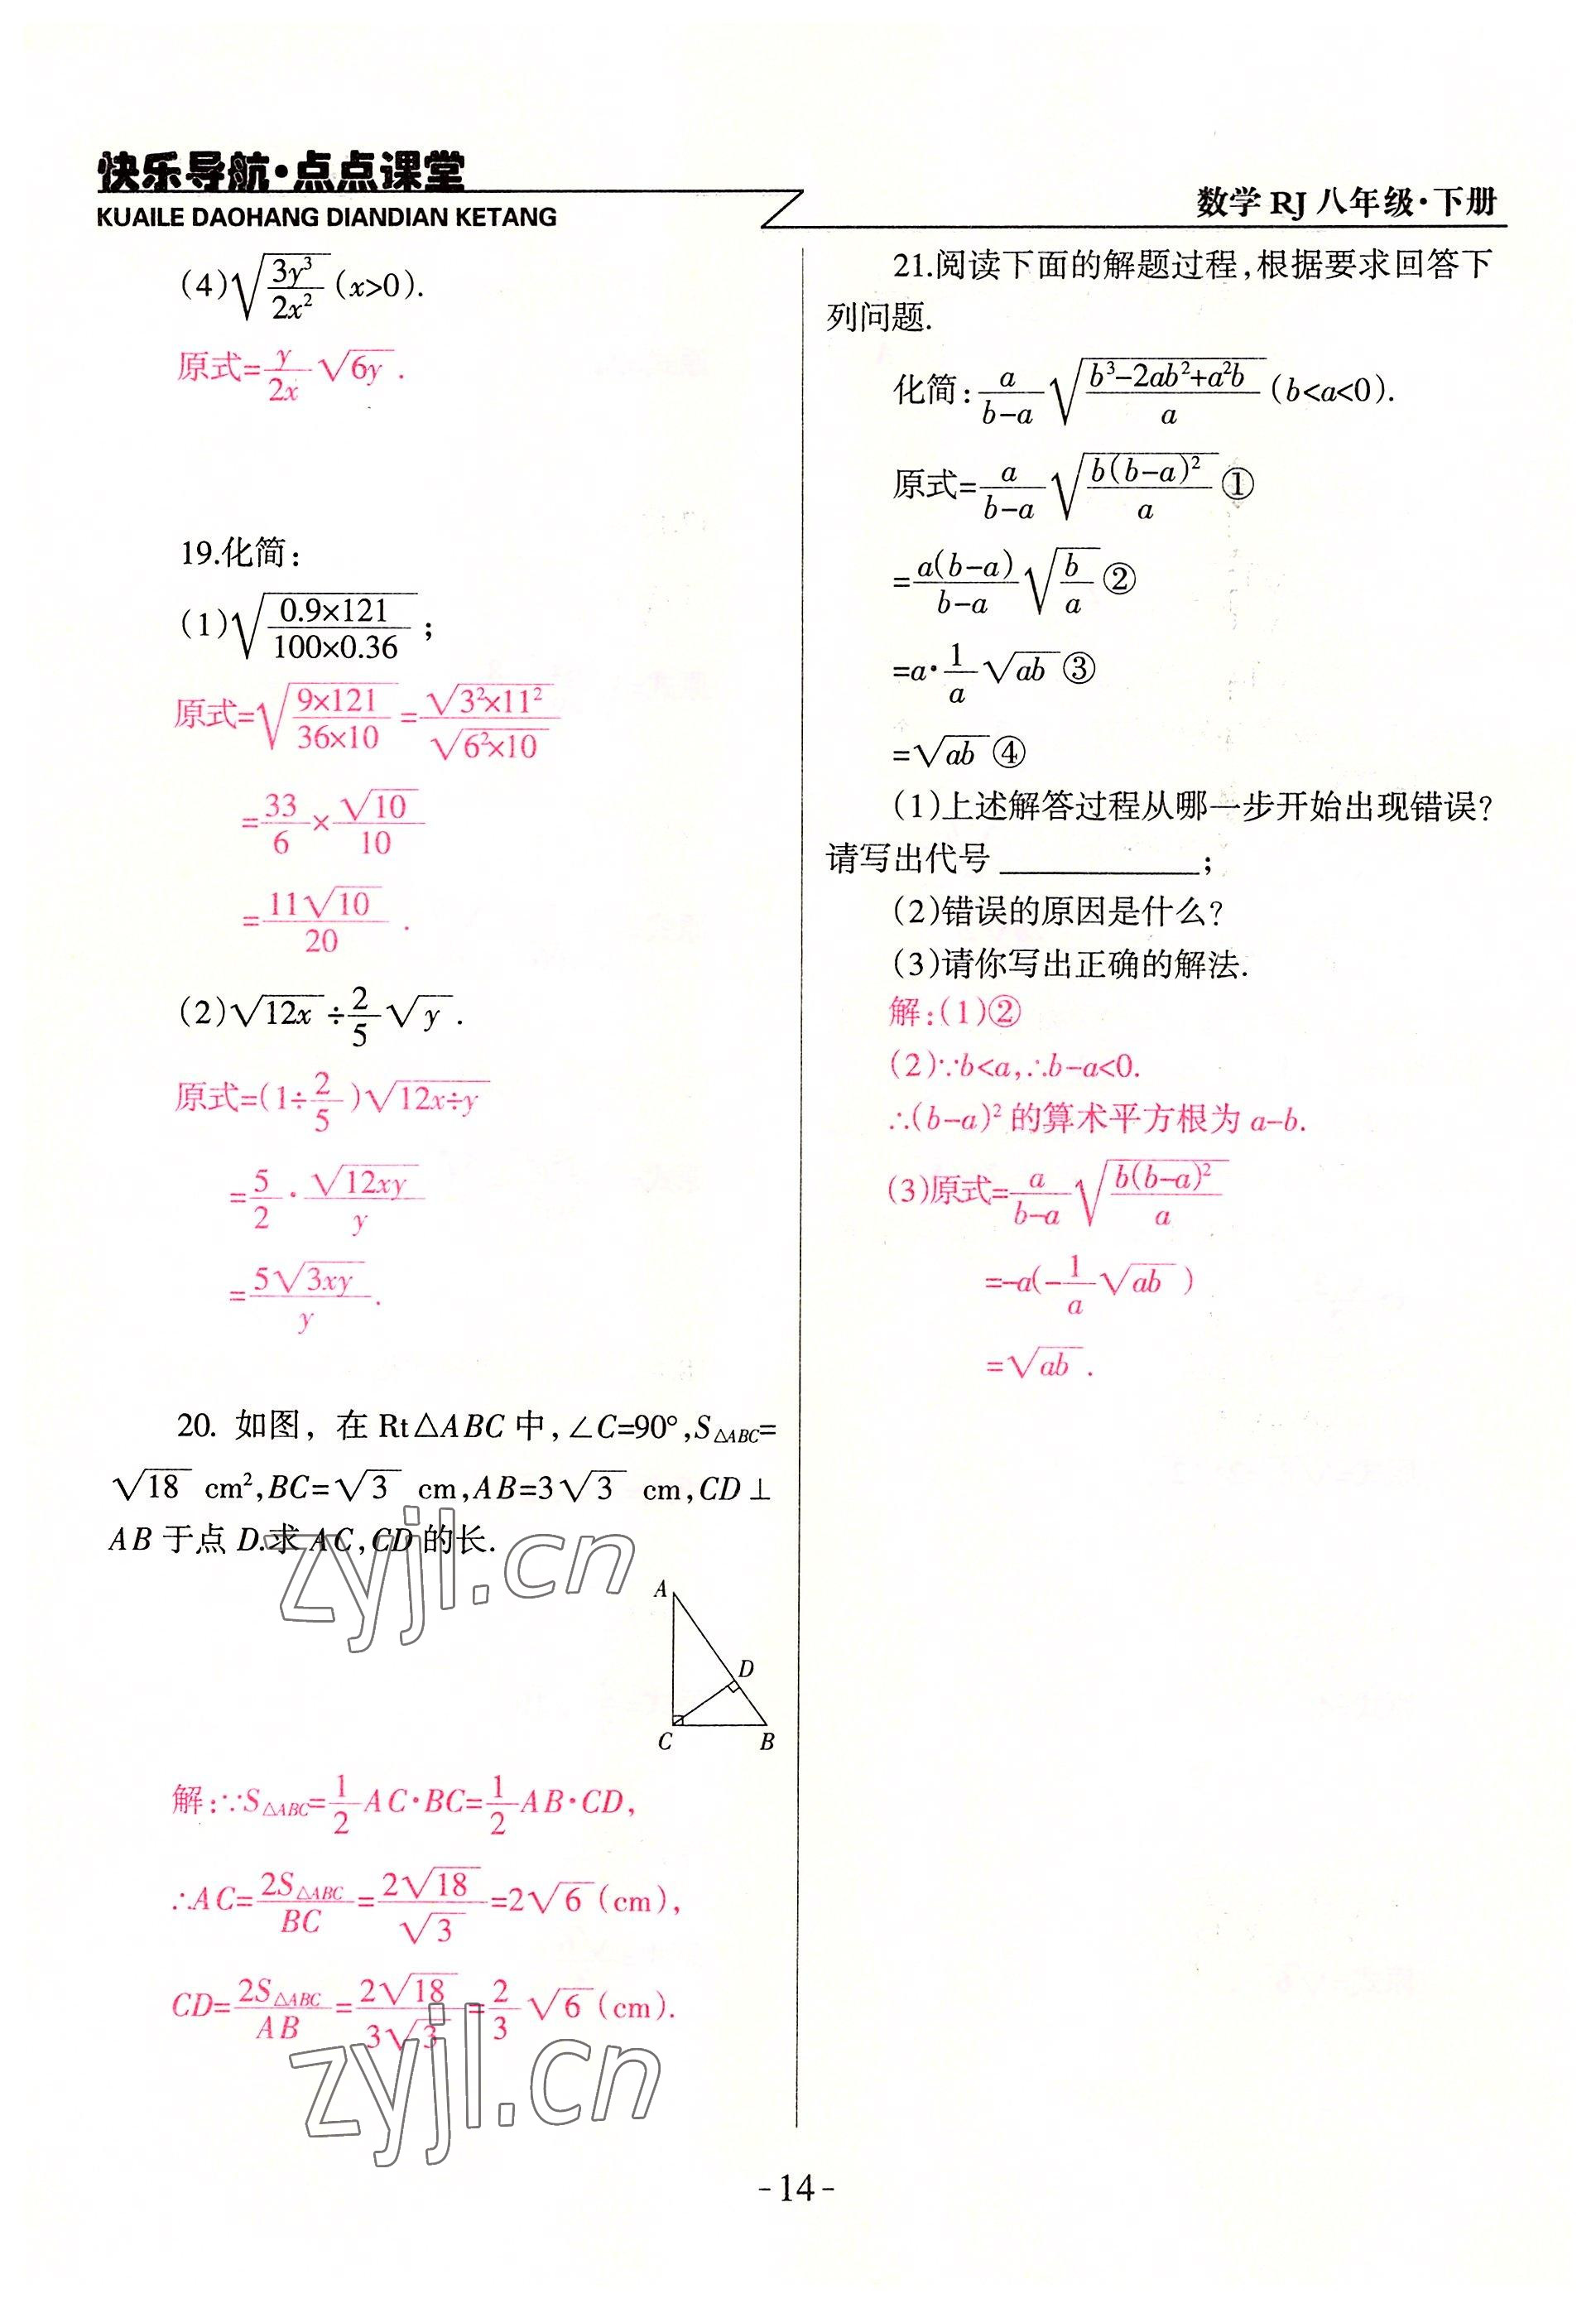 快乐导航·点点课堂
KUAILE DAOHANG DIANDIAN KETANG
数学 RJ 八年级·下册
(4)√(3y³/2x²) (x>0).
原式=y/2x √6y .
19.化简:
(1)√(0.9×121/100×0.36) ;
原式=√(9×121/36×10) =√(3²×11²)/√(6²×10)
=33/6×√10/10
=11√10/20 .
(2)√12x ÷2/5√y .
原式=(1÷2/5)√(12x÷y)
=5/2·√12xy/y
=5√3xy/y .
20. 如图, 在 Rt△ABC 中,∠C=90°,S△ABC=
√18 cm²,BC=√3 cm,AB=3√3 cm,CD⊥
AB 于点 D.求 AC,CD 的长.
A
D
C
B
解:∵S△ABC=1/2 AC·BC=1/2 AB·CD,
∴AC=2S△ABC/BC=2√18/√3=2√6 (cm),
CD=2S△ABC/AB=2√18/3√3=2/3 √6 (cm).
21.阅读下面的解题过程,根据要求回答下
列问题.
化简:a/(b-a) √((b³-2ab²+a²b)/a) (b<a<0).
原式=a/(b-a) √(b(b-a)²/a) ①
=a(b-a)/(b-a) √(b/a) ②
=a·1/a √ab ③
=√ab ④
(1)上述解答过程从哪一步开始出现错误?
请写出代号 ____________;
(2)错误的原因是什么?
(3)请你写出正确的解法.
解:(1)②
(2)∵b<a,∴b-a<0.
∴(b-a)² 的算术平方根为 a-b.
(3)原式=a/(b-a) √(b(b-a)²/a)
=-a(-1/a √ab )
=√ab .
zyjl.cn
zyjl.cn
-14-